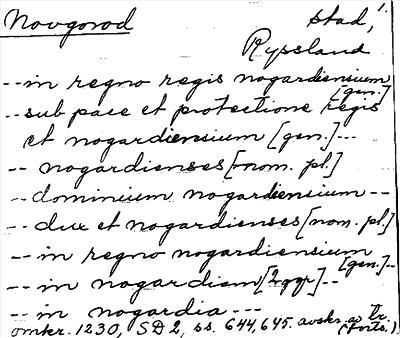 Novgorod stad, 1.
Ryssland
-- in regno regis nogardiensium [gen.]
-- sub pace et protectione regis
et nogardiensium [gen.] --
-- nogardienses [nom. pl.]
-- dominium nogardiensium --
-- dux et nogardienses [nom. pl.]
-- in regno nogardiensium [gen.] --
-- in nogardiam [2 ggr] --
-- in nogardia ---
omkr. 1230, SD 2, ss. 644, 645. avskr. av tr.
(forts.)